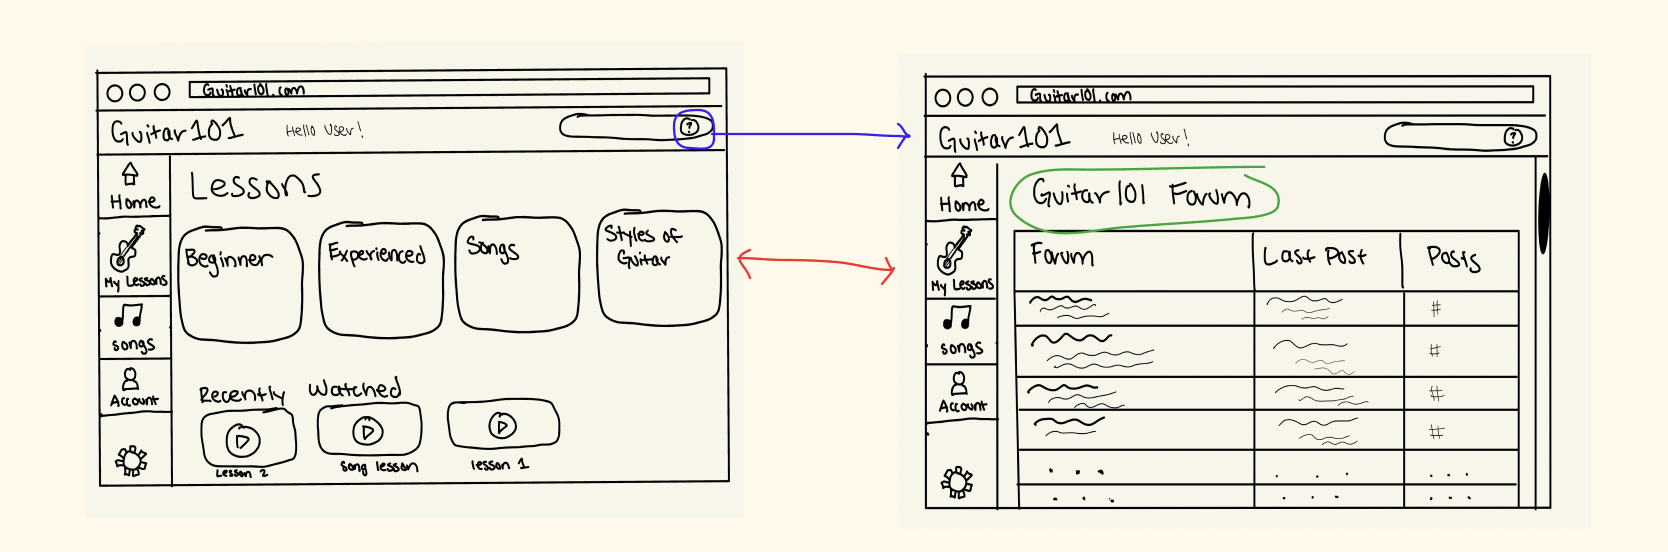 Guitar101.com
Guitar101 Hello User! ?
Home
My Lessons
songs
Account
Lessons
Beginner
Experienced
Songs
Styles of
Guitar
Recently Watched
Lesson 2
Song lesson
lesson 1
Guitar101.com
Guitar101 Hello User! ?
Home
My Lessons
songs
Account
Guitar101 Forum
Forum Last Post Posts
#
#
#
#